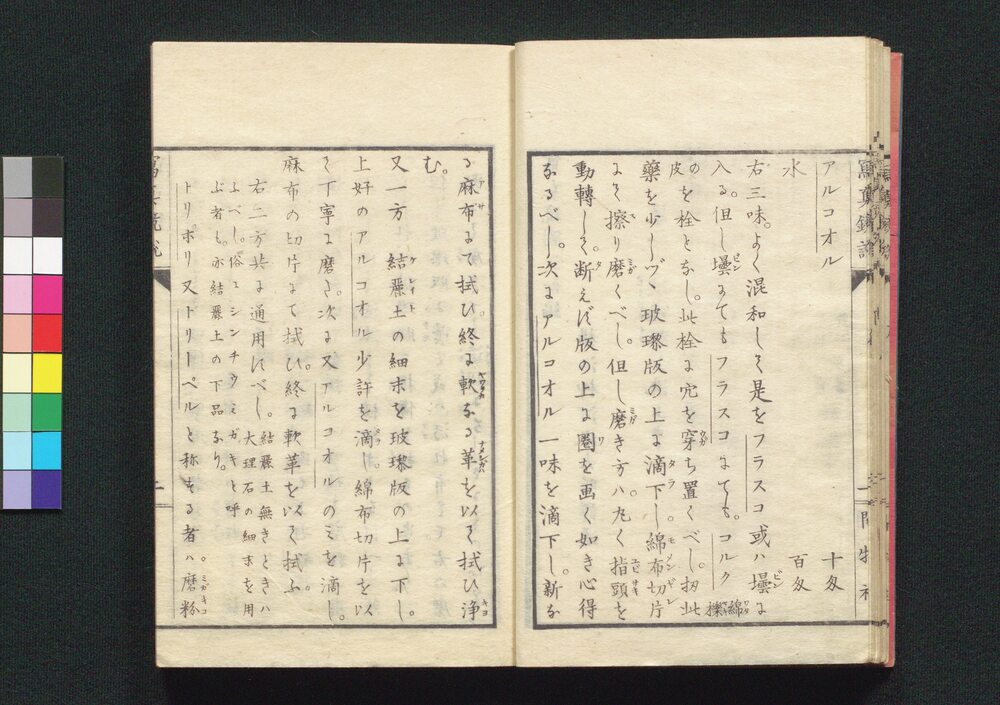 アルコオル 十匁
水 百匁
右三味。よく混和して是をフラスコ或ハ壜に
入る。但し壜にてもフラスコにても。コルク
の皮を栓となし。此栓に穴を穿ち置くべし。扨此
藥を少しヅヽ玻瓈版の上に滴下し綿布切片
にて擦り磨くべし。但し磨き方ハ丸く指頭を
動轉して。断えず版の上に圏を画く如き心得
なるべし。次にアルコオル一味を滴下し。新な
る麻布にて拭ひ終に軟なる革を以て拭ひ浄
む。
又一方 結麗土の細末を玻瓈版の上に下し。
上好のアルコオル少許を滴し綿布切片を以
て丁寧に磨き。次に又アルコオルのミを滴し。
麻布の切片にて拭ひ。終に軟革を以て拭ふ。
右二方共に通用すべし。結麗土無きときハ
大理石の細末を用
ふべし。俗ニシンチウミガキと呼
ぶ者も。亦結麗土の下品なり。
トリポリ又ドリーペルと称する者ハ。磨粉